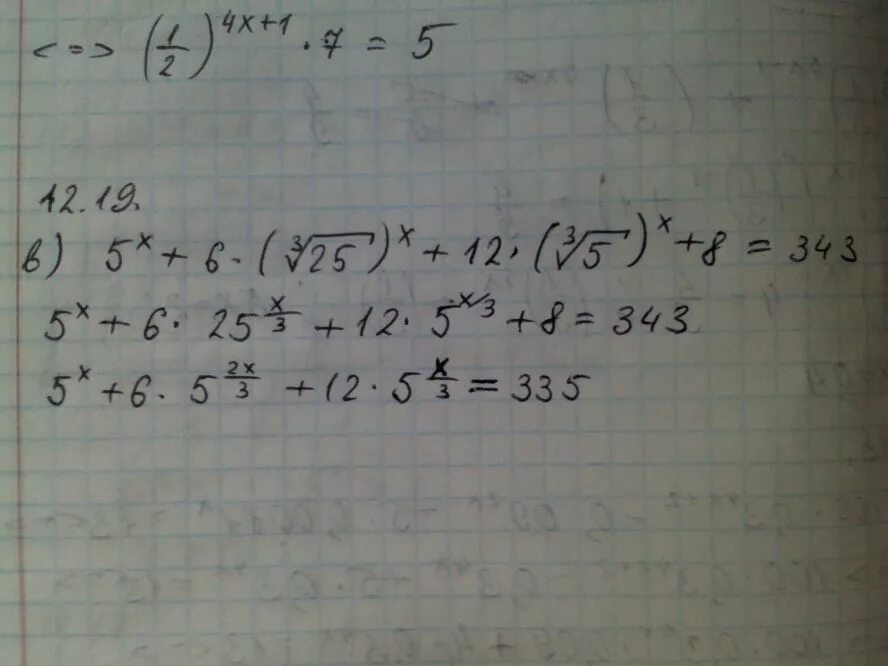 <=> (1/2)^(4x+1) · 7 = 5
12.19.
в) 5^x + 6 · (∛25)^x + 12 · (∛5)^x + 8 = 343
5^x + 6 · 25^(x/3) + 12 · 5^(x/3) + 8 = 343
5^x + 6 · 5^(2x/3) + 12 · 5^(x/3) = 335